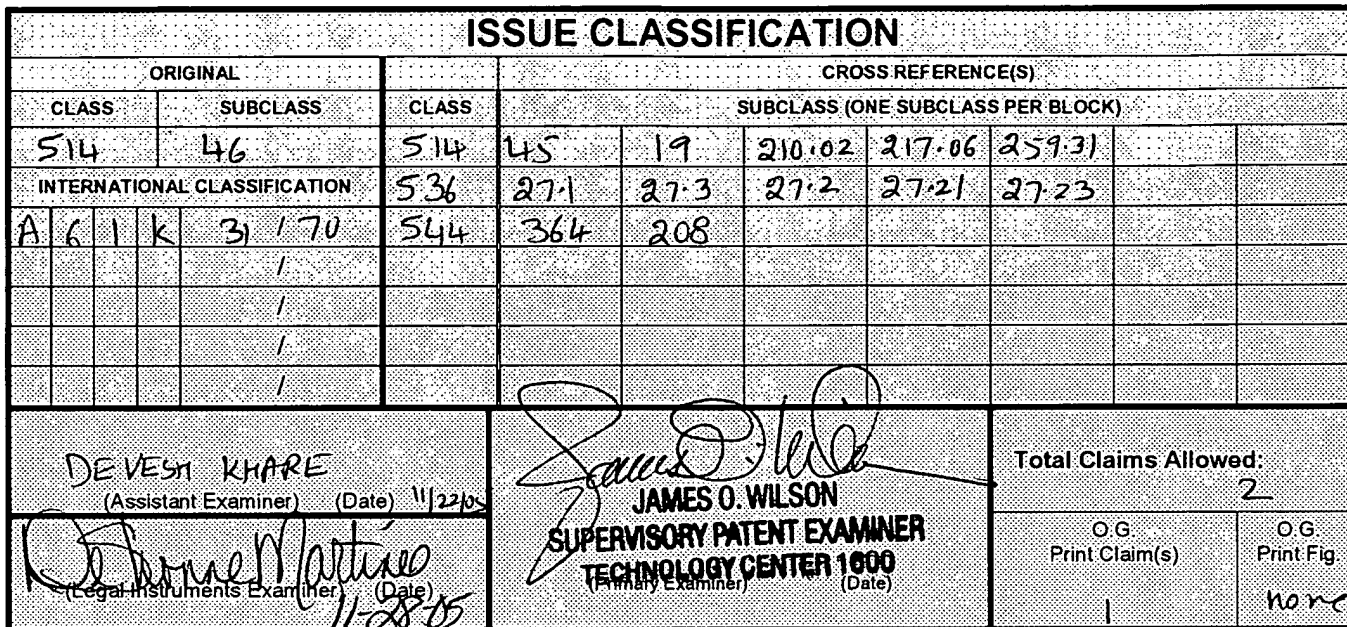 ISSUE CLASSIFICATION
ORIGINAL CROSS REFERENCE(S)
CLASS SUBCLASS CLASS SUBCLASS (ONE SUBCLASS PER BLOCK)
514 46 514 45 19 210.02 217.06 259.31
INTERNATIONAL CLASSIFICATION 536 27.1 27.3 27.2 27.21 27.23
A 6 1 K 31 / 70 544 364 208
/
/
/
/
DEVESH KHARE
(Assistant Examiner) (Date) 11/22/05
JAMES O. WILSON
SUPERVISORY PATENT EXAMINER
TECHNOLOGY CENTER 1600
(Primary Examiner) (Date)
Total Claims Allowed:
2
Martinez
(Legal Instruments Examiner) (Date)
11-28-05
O.G.
Print Claim(s)
1
O.G.
Print Fig.
none